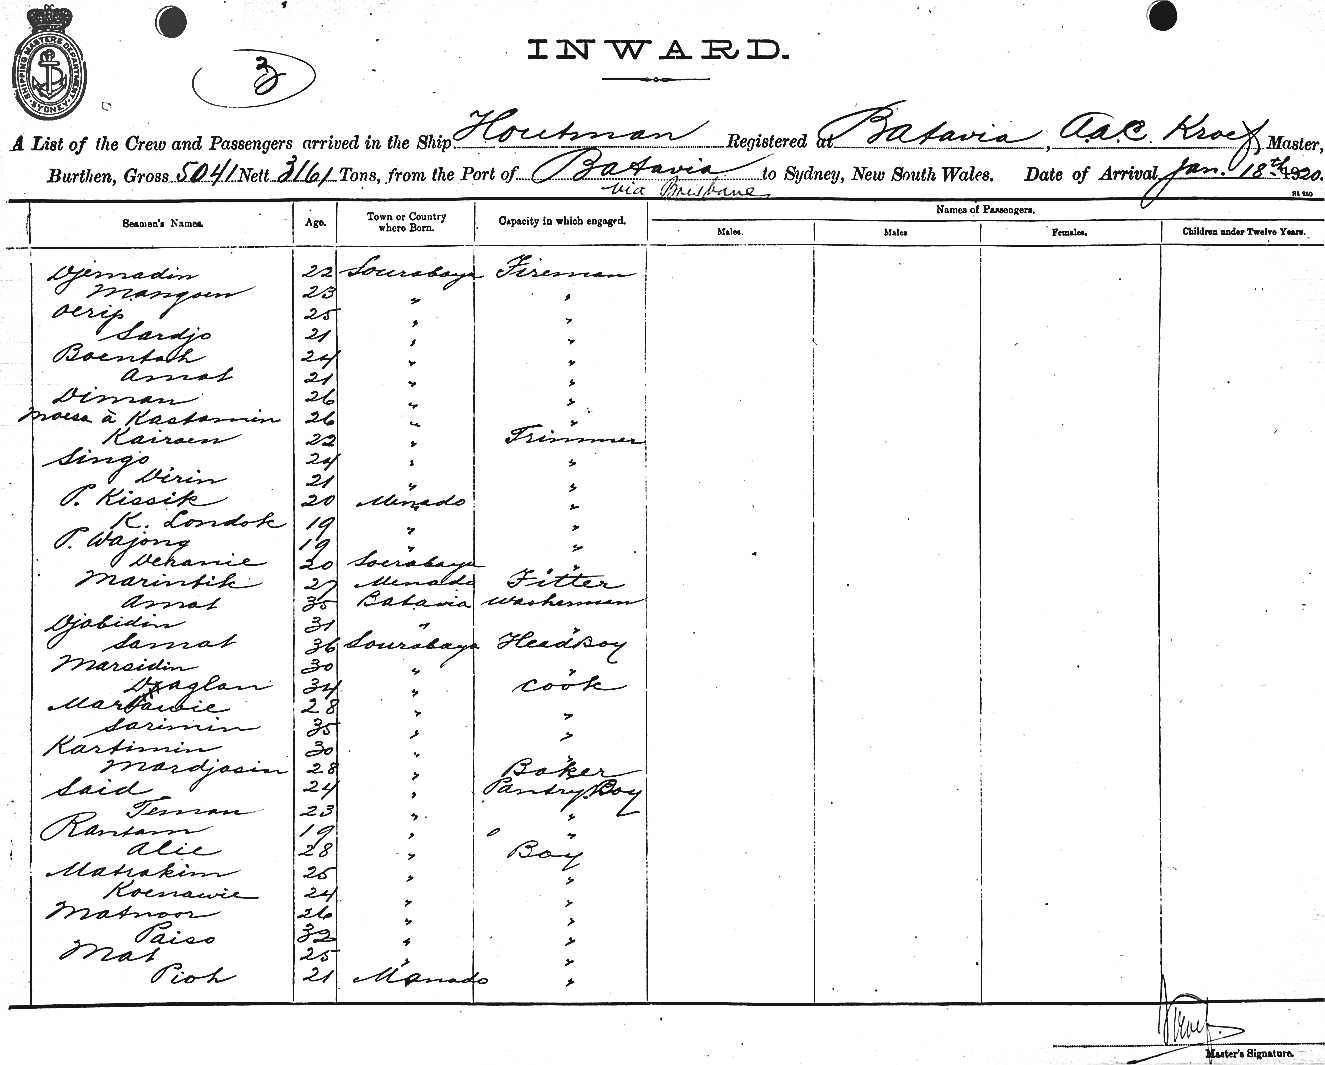 SHIPPING MASTERS DEPARTMENT
SYDNEY
3
INWARD.
A List of the Crew and Passengers arrived in the Ship Houtman Registered at Batavia, A.A.C. Kroef Master,
Burthen, Gross 5041 Nett 3161 Tons, from the Port of Batavia to Sydney, New South Wales. Date of Arrival, Jan. 18th 1920.
via Brisbane
Seamen's Names. Age. Town or Country where Born. Capacity in which engaged. Names of Passengers.
Males. Males Females. Children under Twelve Years.
Djemadin 22 Sourabaya Fireman
Mangoen 23 " "
Oerip 25 " "
Sardjo 21 " "
Boentah 24 " "
Amat 21 " "
Diman 26 " "
Moesa à Kastamin 26 " "
Kairoen 22 " Trimmer
Singo 24 " "
Dirin 21 " "
P. Kissik 20 Menado "
K. Londok 19 " "
P. Wajong 19 " "
Dehanie 20 Soerabaya "
Marintik 27 Menado Fitter
Amat 35 Batavia Washerman
Djabidin 31 " "
Samat 36 Sourabaya Head Boy
Marsidin 30 " "
Djaglan 34 " Cook
Martawie 28 " "
Sarimin 35 " "
Kartimin 30 " "
Mardjasin 28 " Baker
Said 24 " Pantry Boy
Teman 23 " "
Rantam 19 " "
Alie 28 " Boy
Matrakim 25 " "
Koenawie 24 " "
Matnoor 26 " "
Paiso 32 " "
Mat 25 " "
Pioh 21 Manado "
Kroef.
Master's Signature.